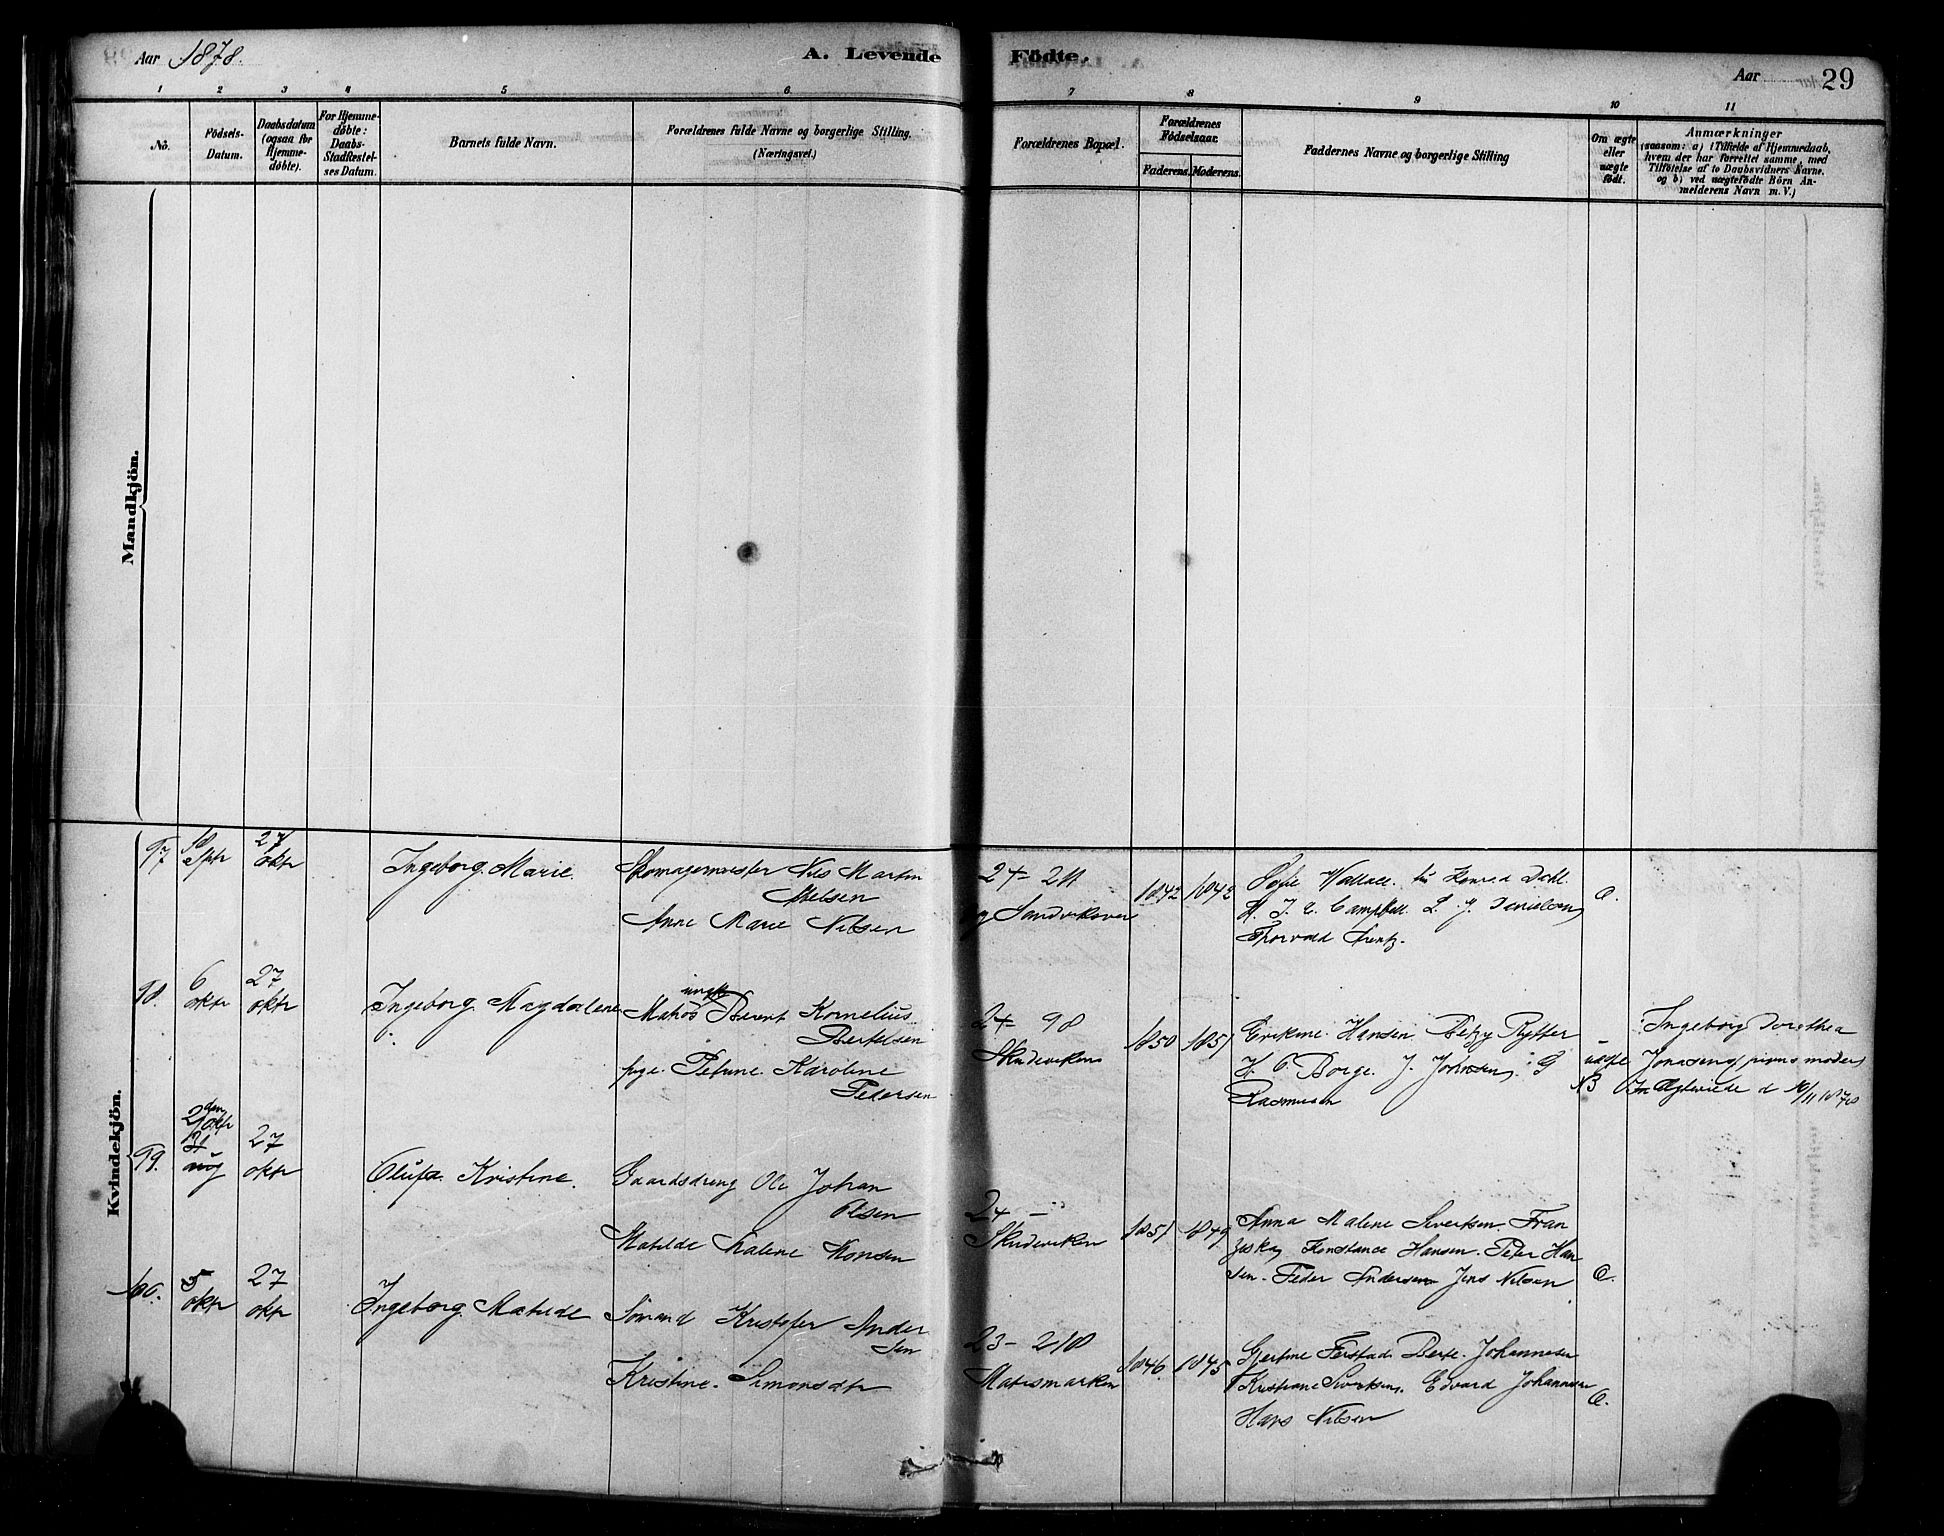 Aar 1878.
A. Levende Födte.
Aar 29
1 2 3 4 5 6 7 8 9 10 11
No.
Födsels-
Datum.
Daabsdatum
(ogsaa for
Hjemme-
døbte).
For Hjemme-
døbte:
Daabs-
Stadfæstel-
ses Datum.
Barnets fulde Navn.
Forældrenes fulde Navne og borgerlige Stilling.
(Næringsvei.)
Forældrenes Bopæl.
Forældrenes
Födselsaar.
Faderens. Moderens.
Faddernes Navne og borgerlige Stilling
Om ægte
eller
uægte
födt.
Anmærkninger
(saasom: a) i Tilfælde af Hjemmedaab,
hvem der har forrettet samme, med
Tilföielse af to Daabsvidners Navne,
og b) ved uægtefödte Börn An-
melderens Navn m. V.)
Mandkjön.
Kvindekjön.
97 18 Sptr 27 oktr
Ingeborg Marie
Skomagermester Nils Martin
Nielsen
Anne Marie Nilsen
24-211
Sandviksveien
1842 1842
Sofie Wallace. Konrad Dahl.
Campbell.
Thorvald
98. 6 oktr 27 oktr
Ingeborg Magdalene
ungk
Matros Bernt Kornelius
Bertelsen
pige. Petrine Karoline
Pedersen
24-98
Skudeviken
1850 1851
Hansen Betzy Rytter
H. O. Borge. J. Johnsen. G
Rasmussen
uægte
NB
Ingeborg Dorothea
Jonassen, pigens moder
Ægteviede d 10/11 1878
99. 31 aug 27 oktr
Olufa Kristine.
Gaardsdreng Ole Johan
Olsen
Matilde Malene Monsen
24 -
Skudeviken
1851 1849
Anna Malene Sivertsen Fran
ziska Konstance Hansen. Peter Han
sen. Peder Andersen Jens Nilsen
Æ.
100. 5 oktr 27 oktr
Ingeborg Matilde
Sömand Kristofer Ander
sen
Kristine Simonsdtr
23-218
Matismarken
1846 1845
Gjertine Ferstad Berte Johannesen
Kristiane Sivertsen. Edvard Johannesen
Hans Nilsen
Æ.